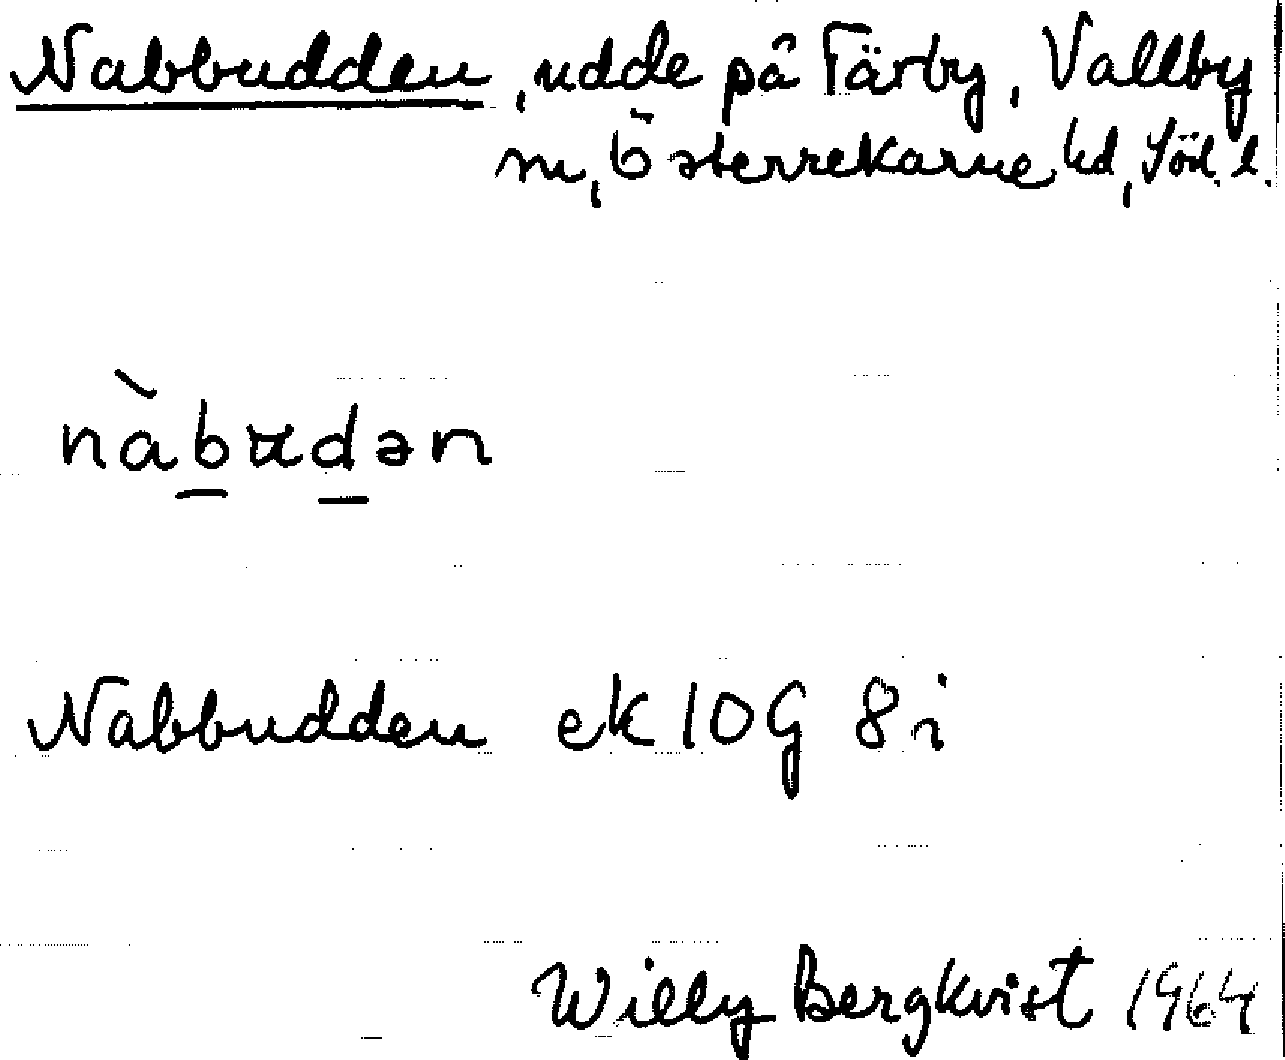 Nabbudden, udde på Färby, Vallby
sn, Österrekarne hd, Söd. l.
nàbʉdən
Nabbudden ek 10G 8i
Willy Bergkvist 1964